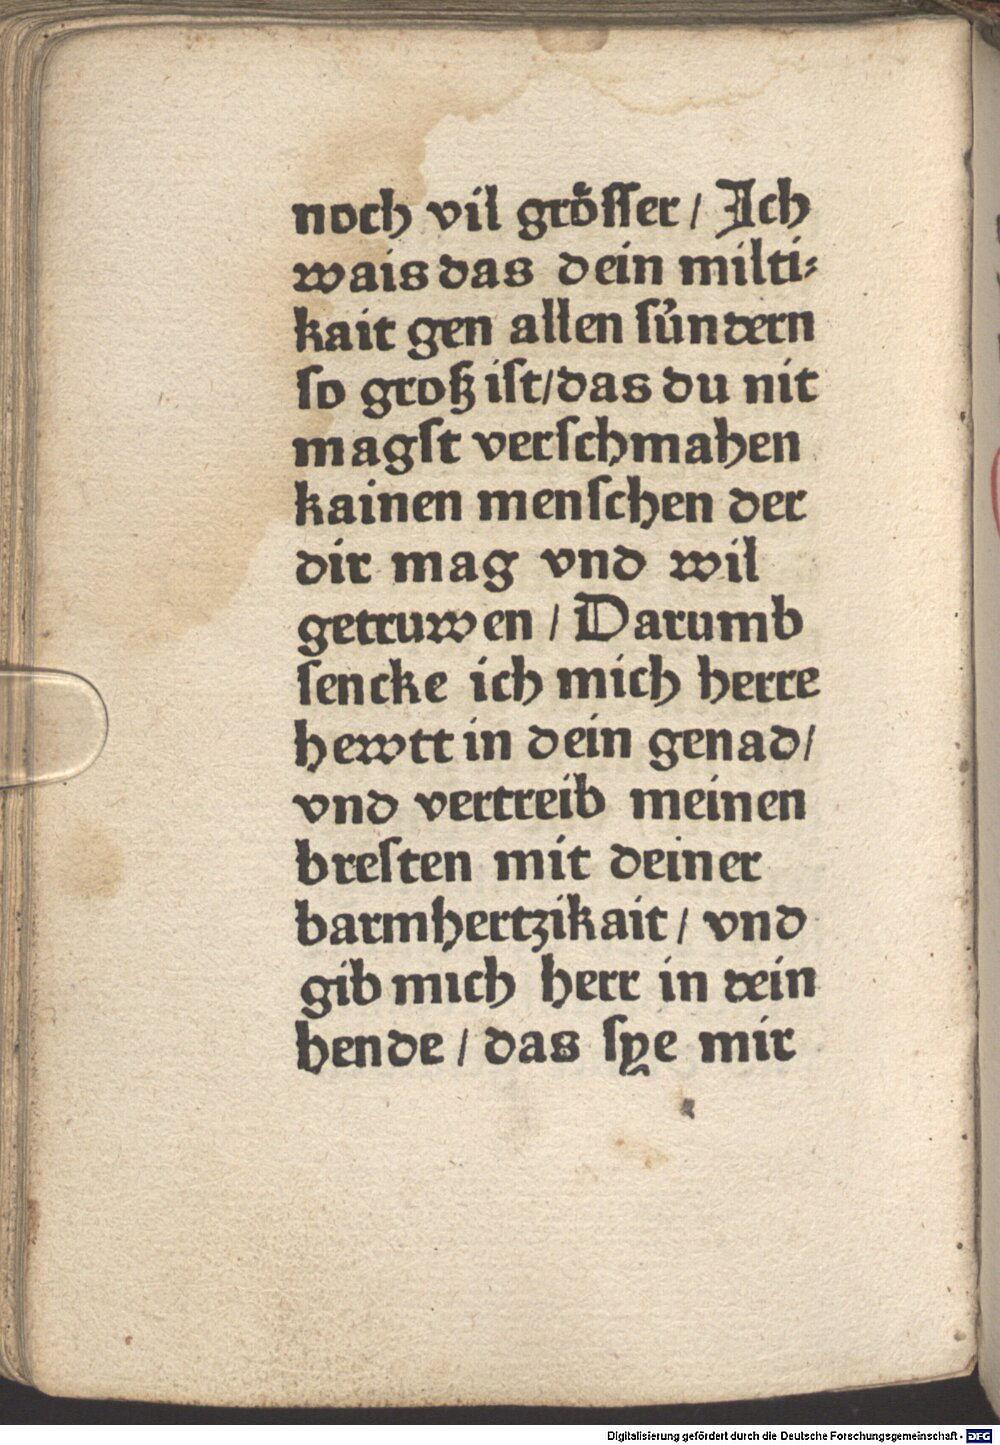 noch vil groͤſſer / Ich
wais das dein milti⸗
kait gen allen ſuͤndern
ſo groß iſt / das du nit
magſt verſchmahen
kainen menſchen der
dir mag vnd wil
getruwen / Darumb
ſencke ich mich herre
hewtt in dein genad /
vnd vertreib meinen
breſten mit deiner
barmhertzikait / vnd
gib mich herr in dein
hende / das ſye mir
Digitalisierung gefördert durch die Deutsche Forschungsgemeinschaft - DFG